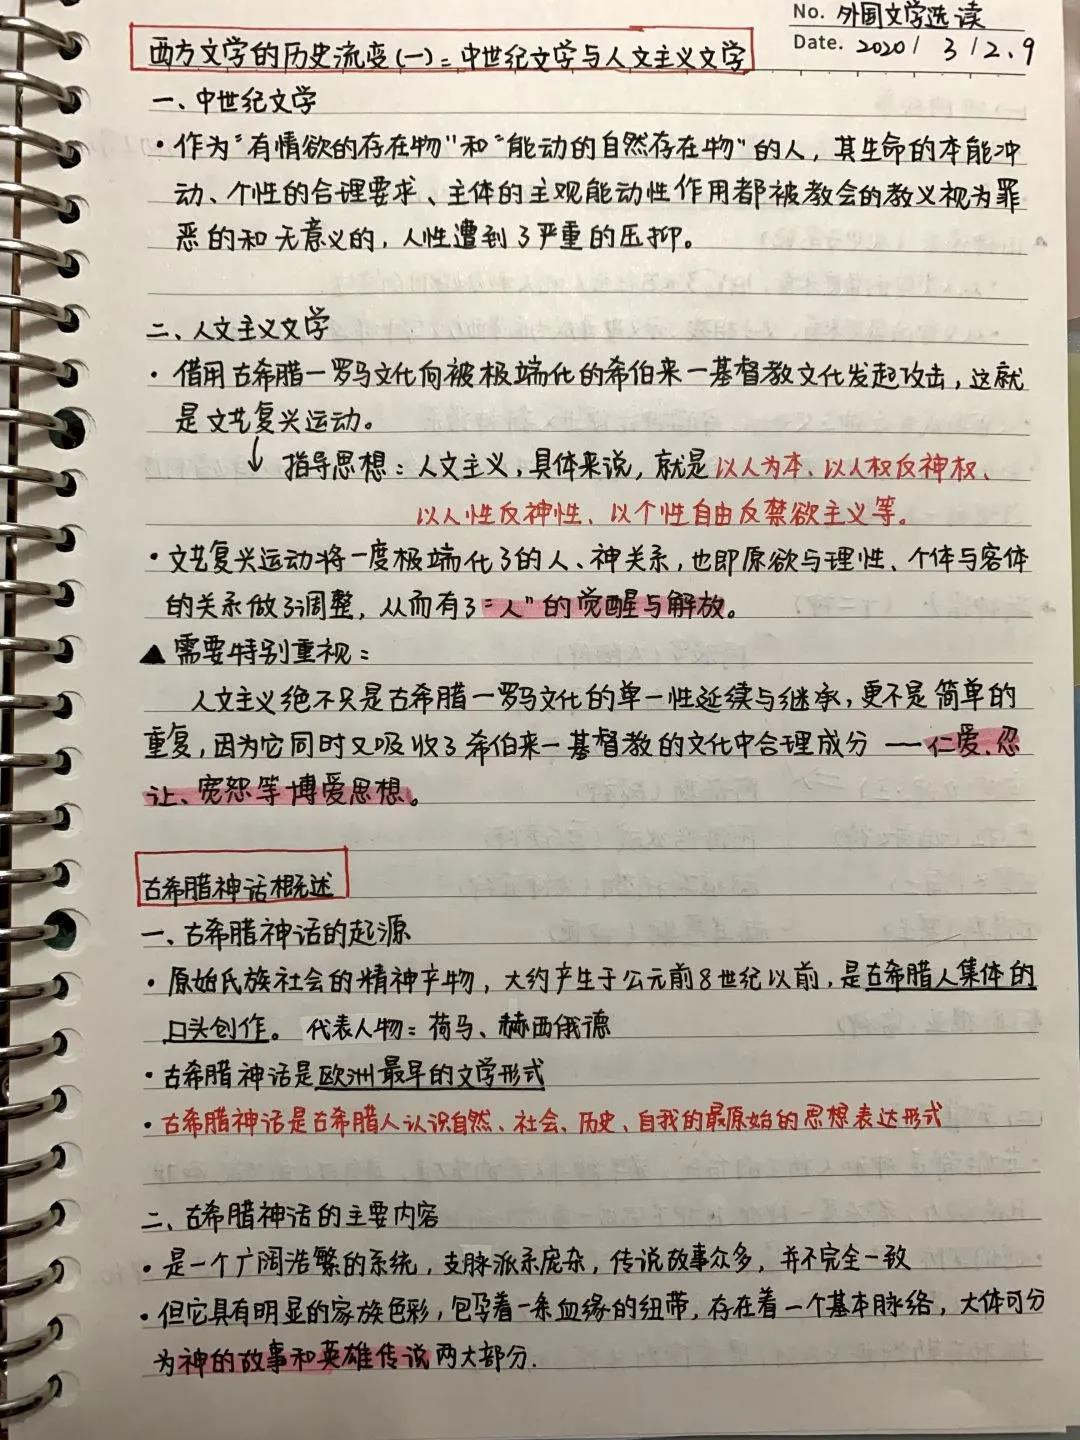 No. 外国文学选读
Date. 2020 / 3 / 2、9
西方文学的历史流变(一)：中世纪文学与人文主义文学
一、中世纪文学
· 作为“有情欲的存在物”和“能动的自然存在物”的人，其生命的本能冲
动、个性的合理要求、主体的主观能动性作用都被教会的教义视为罪
恶的和无意义的，人性遭到了严重的压抑。
二、人文主义文学
· 借用古希腊—罗马文化向被极端化的希伯来—基督教文化发起攻击，这就
是文艺复兴运动。
↓ 指导思想：人文主义，具体来说，就是以人为本、以人权反神权、
以人性反神性、以个性自由反禁欲主义等。
· 文艺复兴运动将一度极端化了的人、神关系，也即原欲与理性、个体与客体
的关系做了调整，从而有了“人”的觉醒与解放。
▲ 需要特别重视：
人文主义绝不只是古希腊—罗马文化的单一性延续与继承，更不是简单的
重复，因为它同时又吸收了希伯来—基督教的文化中合理成分 ——仁爱、忍
让、宽恕等博爱思想。
古希腊神话概述
一、古希腊神话的起源
· 原始氏族社会的精神产物，大约产生于公元前8世纪以前，是古希腊人集体的
口头创作。 代表人物：荷马、赫西俄德
· 古希腊神话是欧洲最早的文学形式
· 古希腊神话是古希腊人认识自然、社会、历史、自我的最原始的思想表达形式
二、古希腊神话的主要内容
· 是一个广阔浩繁的系统，支脉派系庞杂，传说故事众多，并不完全一致
· 但它具有明显的家族色彩，包孕着一条血缘的纽带，存在着一个基本脉络，大体可分
为神的故事和英雄传说两大部分.